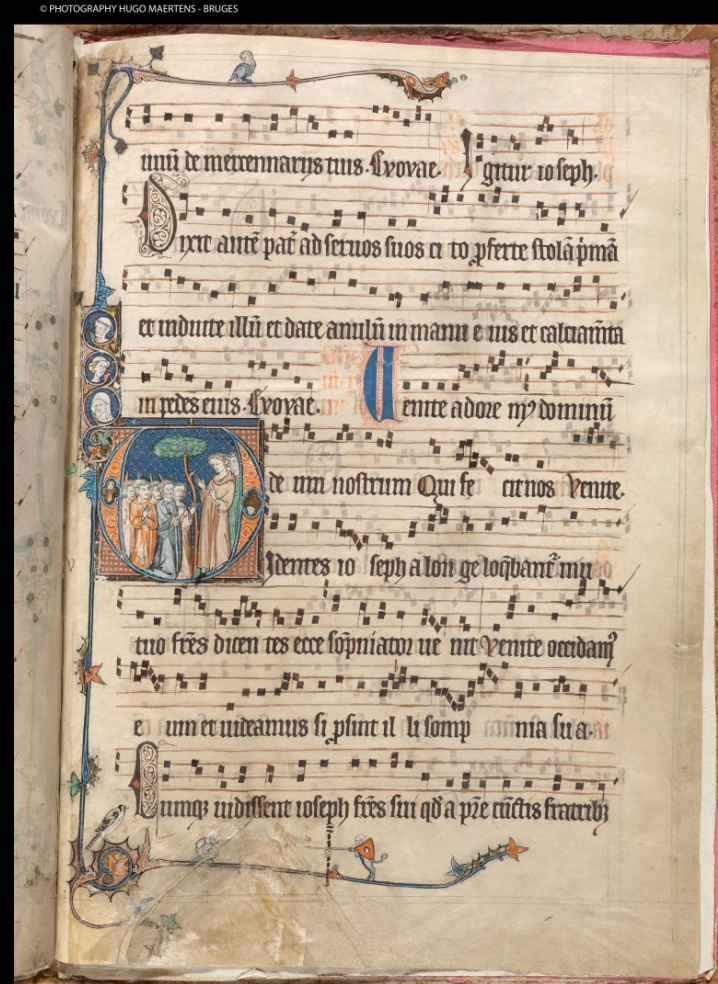 © PHOTOGRAPHY HUGO MAERTENS - BRUGES
unū de mercennarijs tuis. Evovae. Igitur ioseph.
Dixit autē pat̄ ad seruos suos ci to ꝓferte stolā pͥmā
et induite illū et date anulū in manu e ius et calciam̄ta
in pedes eius. Evovae. Uenite adore mꝰ dominū
de um nostrum Qui fe cit nos Venite.
Videntes io seph a lon ge loq̄bant᷑ mu
tuo fr̄es dicen tes ecce sōpniator ue nit Venite occidamꝰ
e um et uideamus si ꝓsint il li somp nia su a.
Cumqꝫ uidissent ioseph fr̄es sui qđ a pr̄e cūctis fratribꝫ